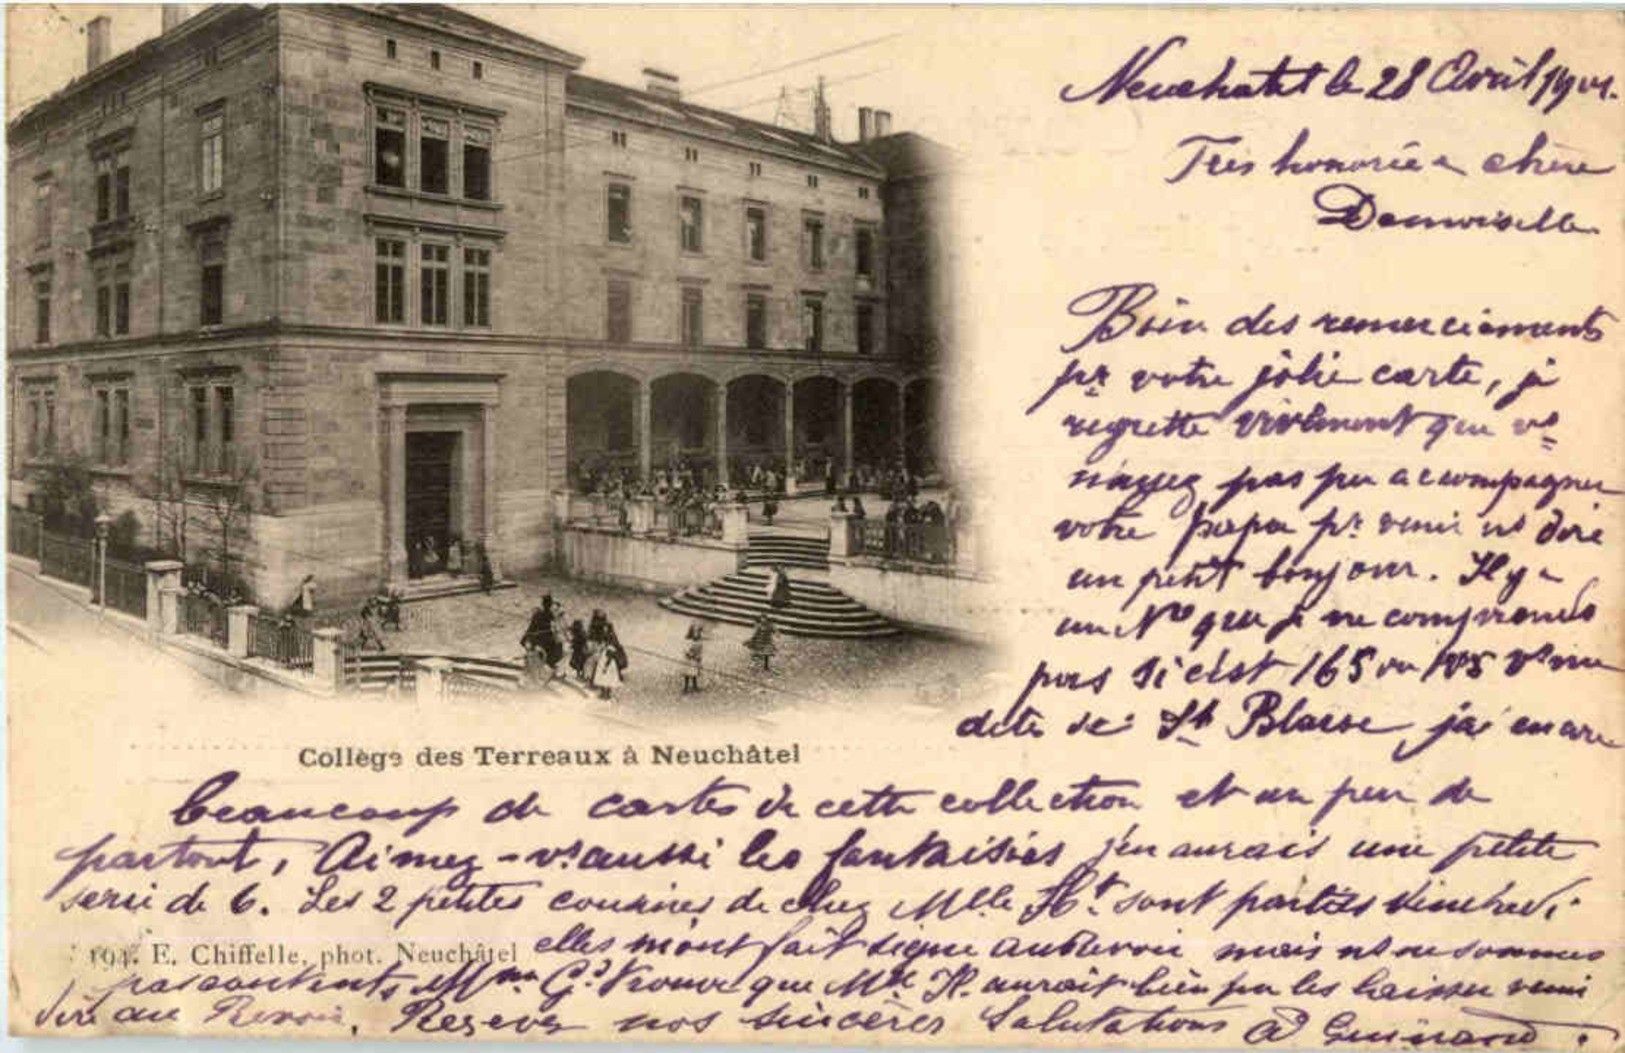 Neuchatel le 28 Avril 1901.
Très honorée & chère
Demoiselle
Bien des remerciements
pr votre jolie carte, je
regrette vivement que vs
n'ayez pas pu accompagner
votre papa pr venir ns dire
un petit bonjour. Il y a
un No que je ne comprends
pas si c'est 165 ou vs me
dites de: St Blaise, j'ai encore
Collège des Terreaux à Neuchâtel
beaucoup de cartes de cette collection et un peu de
partout, Aimez-vs aussi les fantaisies j'en aurais une petite
serie de 6. Les 2 petites cousines de chez Mlle Ht. sont parties Vendredi,
elles m'ont fait signe au revoir mais ns ne sommes
194. E. Chiffelle, phot. Neuchâtel
pas contents, Mme Gd trouve que Mlle H. aurait bien pu les laisser venir
dire au Revoir. Recevez nos sincères Salutations